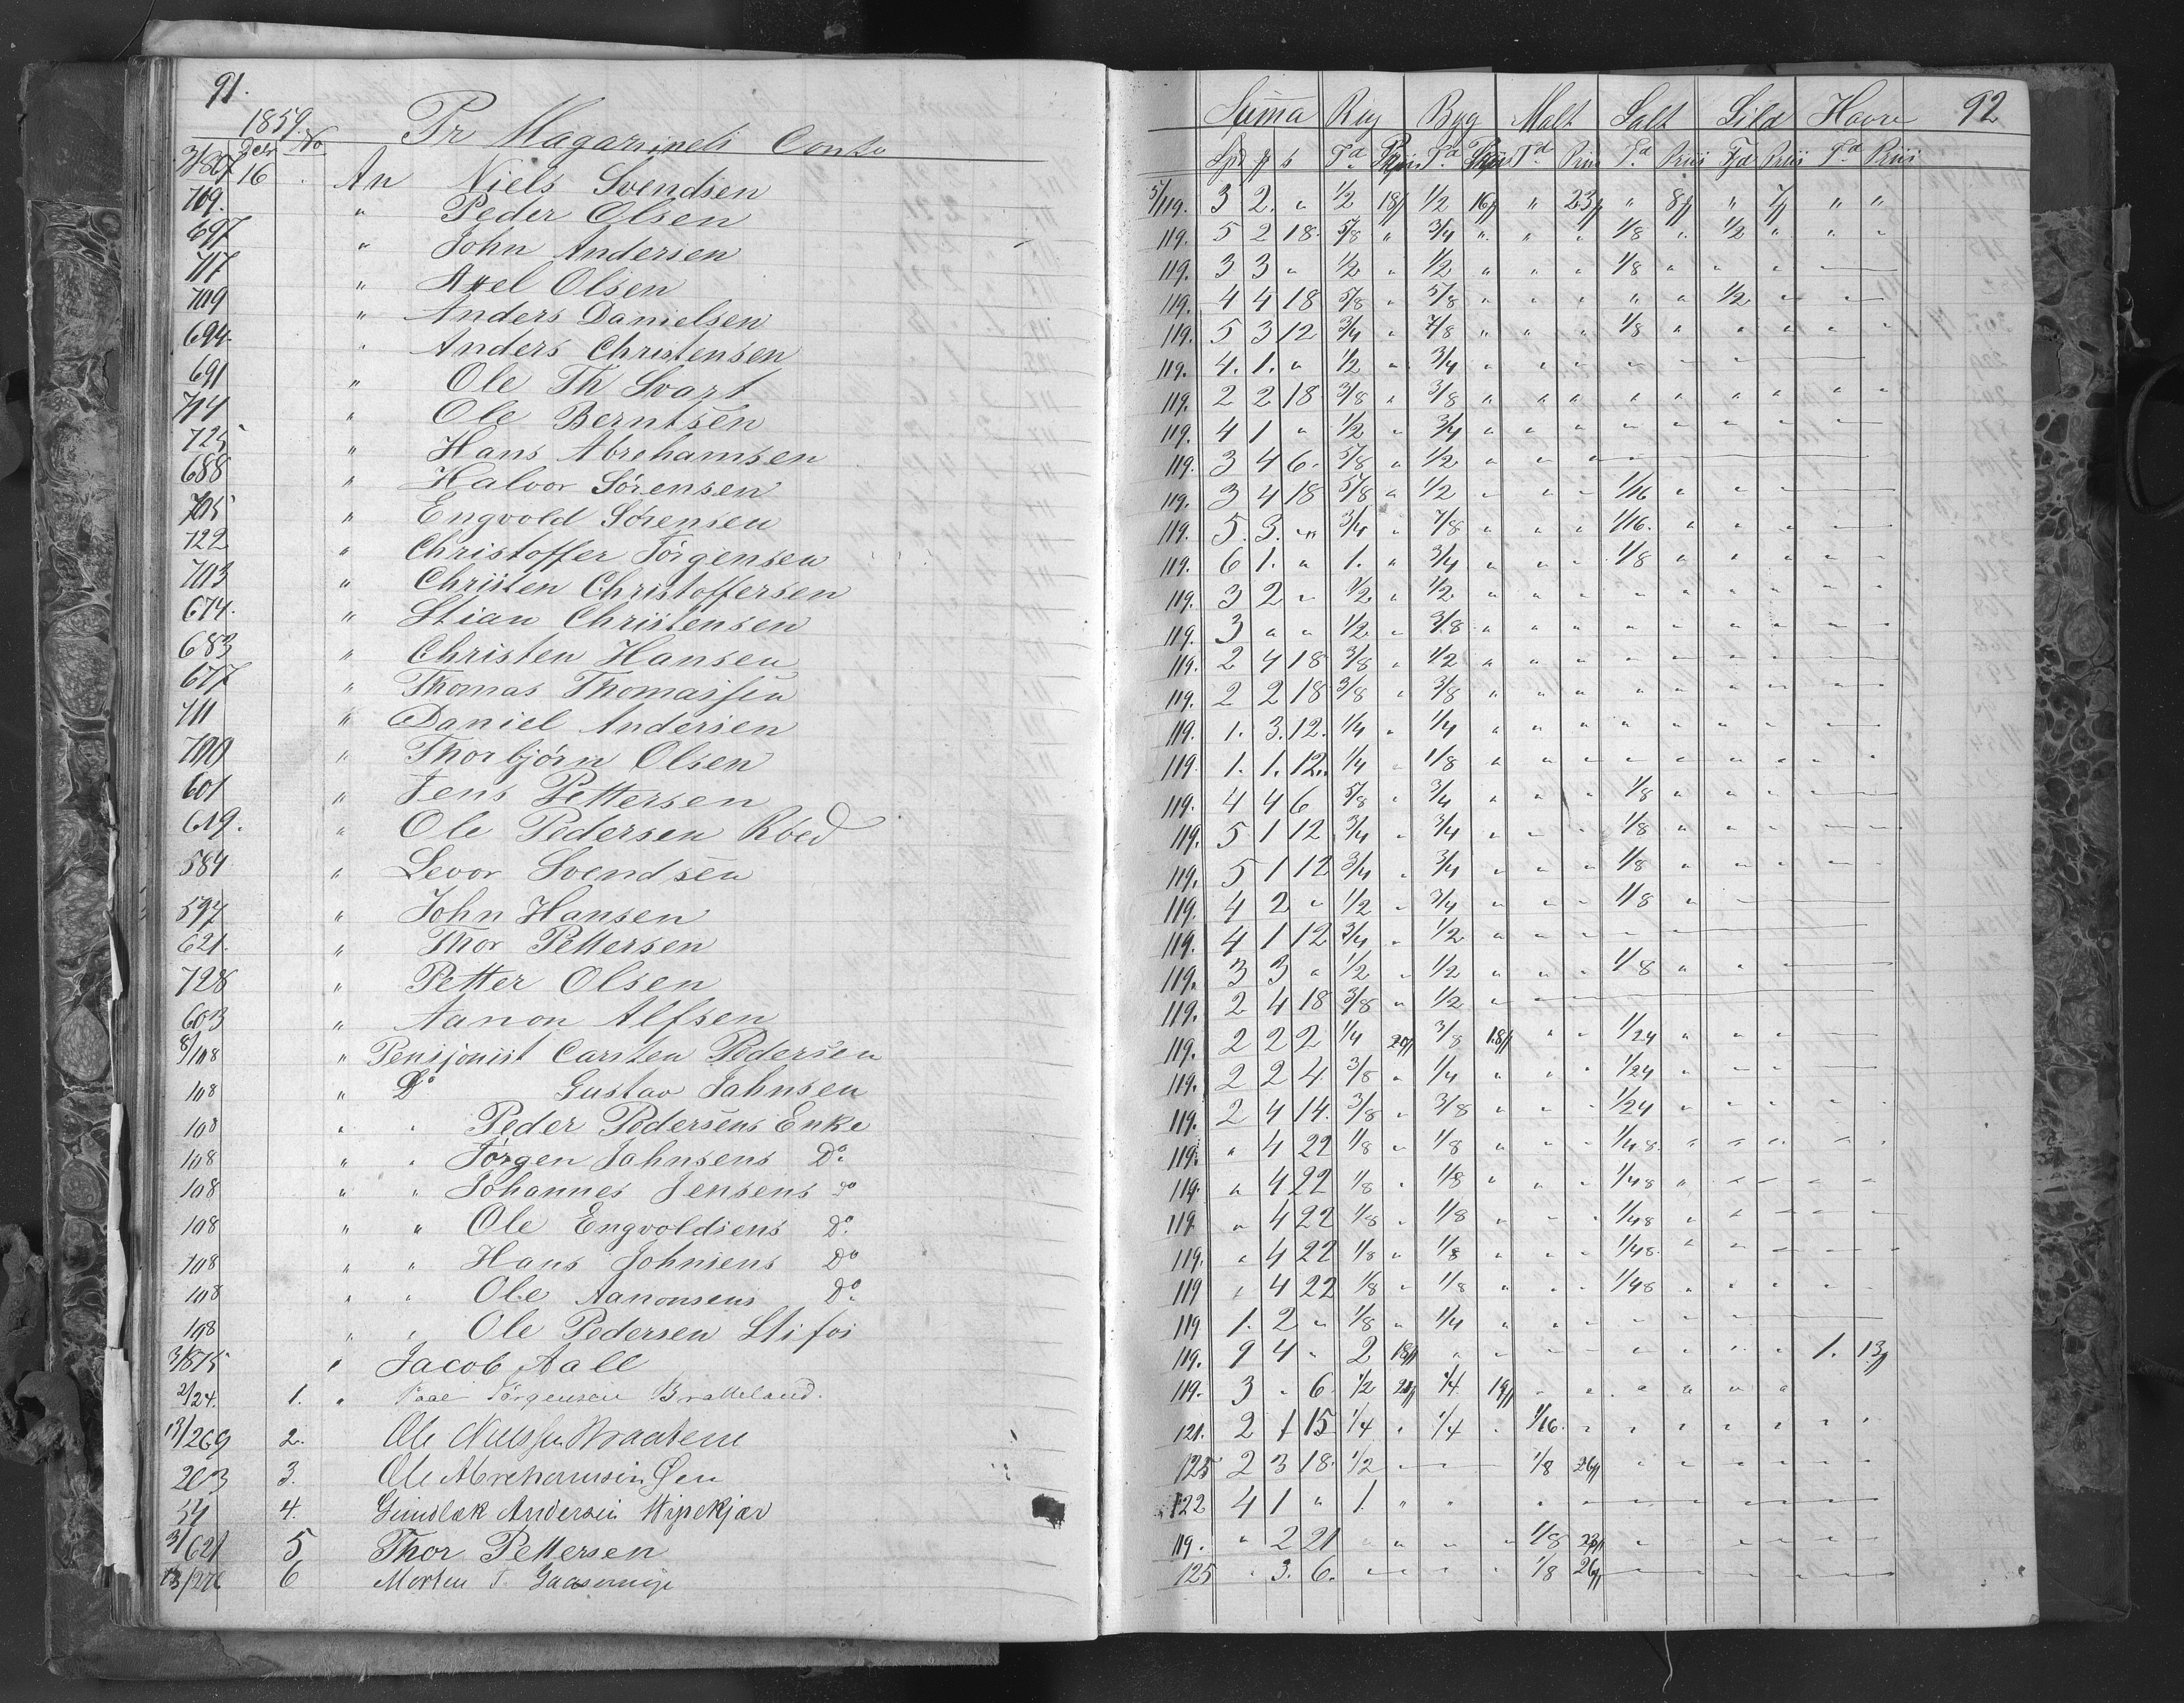 91.
1859. Pr Magazinets Conto
Decbr No
3/807 16 An Niels Svendsen
709. " Peder Olsen
697 " John Andersen
717 " Axel Olsen
709 " Anders Danielsen
694. " Anders Christensen
691 " Ole Th Svart
714 " Ole Berntsen
725 " Hans Abrehamsen
688 " Halvor Sörensen
705 " Engvold Sörensen
722 " Christoffer Jörgensen
703 " Christen Christoffersen
674. " Stian Christensen
683 " Christen Hansen
677 " Thomas Thomassen
711 " Daniel Andersen
700 " Thorbjörn Olsen
601 " Jens Pettersen
619. " Ole Pedersen Röed
584 " Levor Svendsen
597 " John Hansen
621. " Thor Pettersen
728 " Petter Olsen
603 " Aanon Alfsen
8/108 " Pensjonist Carsten Pedersen
108 " Do Gustav Jahnsen
108 " " Peder Pedersens Enke
108 " " Jörgen Jahnsens Do
108 " " Johannes Jensens Do
108 " " Ole Engvoldsens Do
108 " " Hans Johnsens Do
108 " " Ole Aanonsens Do
108 " " Ole Pedersen Stifos
3/875 " Jacob Aall
2/24. 1. " Paal Jörgensen Bratteland.
13/269 2. Ole Nielssen Braatene
203 3. Ole Abrehamsen Öen
54 4. Gundlæk Andersen Wipekjær
3/621 5 Thor Pettersen
13/276 6 Morten T. Gaasemyr
92
Suma Rug Byg Malt Salt Sild Havre
Spd ß Td Priis Td Priis Td Priis Td Priis Td Priis Td Priis
5/119. 3 2. " 1/2 18ß 1/2 16ß " 23ß " 8ß " 7ß " "
119. 5 2 18. 5/8 " 3/4 " " " 1/8 " 1/2 " " "
119. 3 3 " 1/2 " 1/2 " " " 1/8 " " "
119. 4 4 18 5/8 " 5/8 " " " " " 1/2 "
119. 5 3 12 3/4 " 7/8 " " " 1/8 " " " " "
119. 4. 1. " 1/2 " 3/4 " " " "
119. 2 2 18 3/8 " 3/8 " " " " " " " " "
119. 4 1 " 1/2 " 3/4 " " " " " "
119. 3 4 6. 5/8 " 1/2 " " "
119. 3 4 18 5/8 " 1/2 " " " 1/16 " " "
119. 5. 3. " 3/4 " 7/8 " " " 1/16. " " "
119. 6 1. " 1. " 3/4 " " " 1/8 " " " " "
119. 3 2 " 1/2 " 1/2 " " " " " " " " "
119. 3 " " 1/2 " 3/8 " " " " " " " " "
119. 2 4 18 3/8 " 1/2 " " " " "
119. 2 2 18 3/8 " 3/8 " " " " " " " " "
119. 1. 3. 12. 1/4 " 1/4 " " " " " " "
119. 1. 1. 12. 1/4 " 1/8 " " " " " " " " "
119. 4 4 6 5/8 " 3/4 " " " 1/8 " " "
119. 5 1 12 3/4 " 3/4 " " " 1/8 " " "
119. 5 1 12 3/4 " 3/4 " " " 1/8 " " "
119. 4 2 " 1/2 " 3/4 " " " 1/8 "
119. 4 1 12 3/4 " 1/2 " " "
119. 3 3 " 1/2 " 1/2 " " " 1/8 " " "
119. 2 4 18 3/8 " 1/2 "
119. 2 2 2 1/4 20ß 3/8 18ß " " 1/24 " " "
119. 2 2 4 3/8 " 1/4 " " " 1/24 " " "
119. 2 4 14. 3/8 " 3/8 " " " 1/24 " " " " "
119. " 4 22 1/8 " 1/8 " " " 1/48. " " " " "
119. " 4 22 1/8 " 1/8 " " " 1/48 " " " " "
119 " 4 22 1/8 " 1/8 " " " 1/48 " " " " "
119. " 4 22 1/8 " 1/8 " " " 1/48. " " " " "
119 " 4 22 1/8 " 1/8 " " " 1/48 " " " " "
119 1. 2 " 1/8 " 1/4 " " " " " " "
119. 9 4 " 2 18ß " " " " " " " " 1. 13ß
119. 3 " 6 1/2 20ß 1/4 19ß " " " " " "
121. 2 1 15 1/4 " 1/4 " 1/16. " " " " " " "
125 2 3 18. 1/2 " " 1/8 26ß " " " " " "
122 4 1 " 1. " " " " " "
119. " 2 21 " " " " 1/8 23ß " " " " " "
125 " 3. 6. " " " " 1/8 26ß " " " " " "